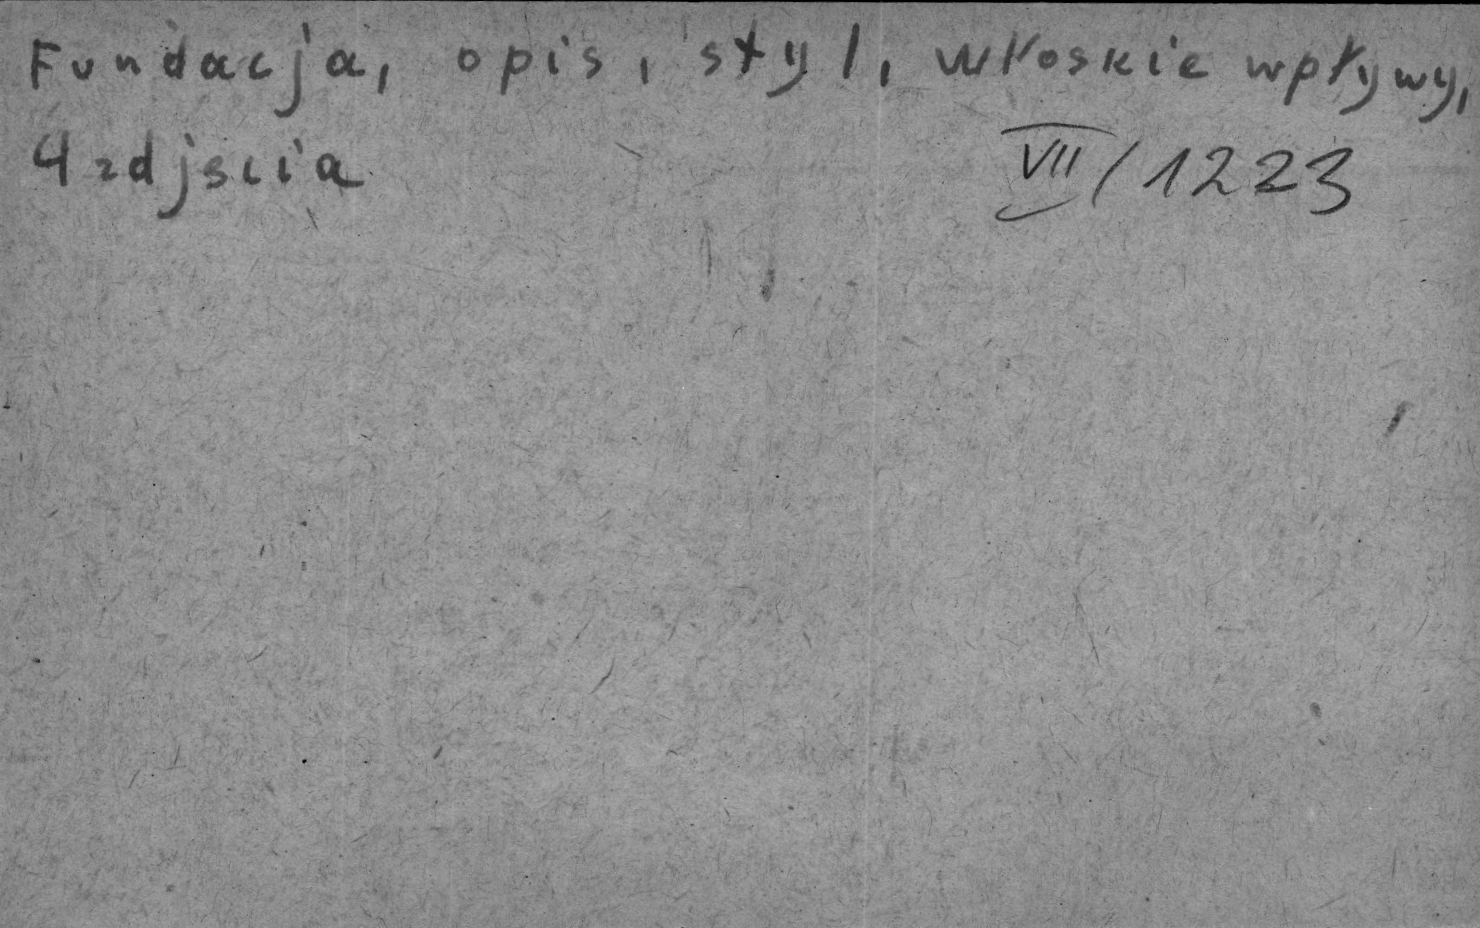 Fundacja, opis, styl, włoskie wpływy,
4 zdjscia VII/1223